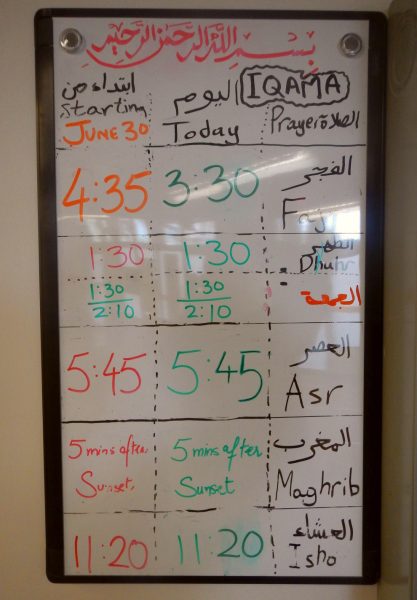 بسم الله الرحمن الرحيم
IQAMA
الصلاة Prayer
اليوم
Today
ابتداء من
Starting
JUNE 30
الفجر
Faj
3:30
4:35
الظهر
Dhuhr
1:30
1:30
الجمعة
1:30
2:10
1:30
2:10
العصر
Asr
5:45
5:45
المغرب
Maghrib
5 mins after
Sunset
5 mins after
Sunset.
العشاء
Isha
11:20
11:20